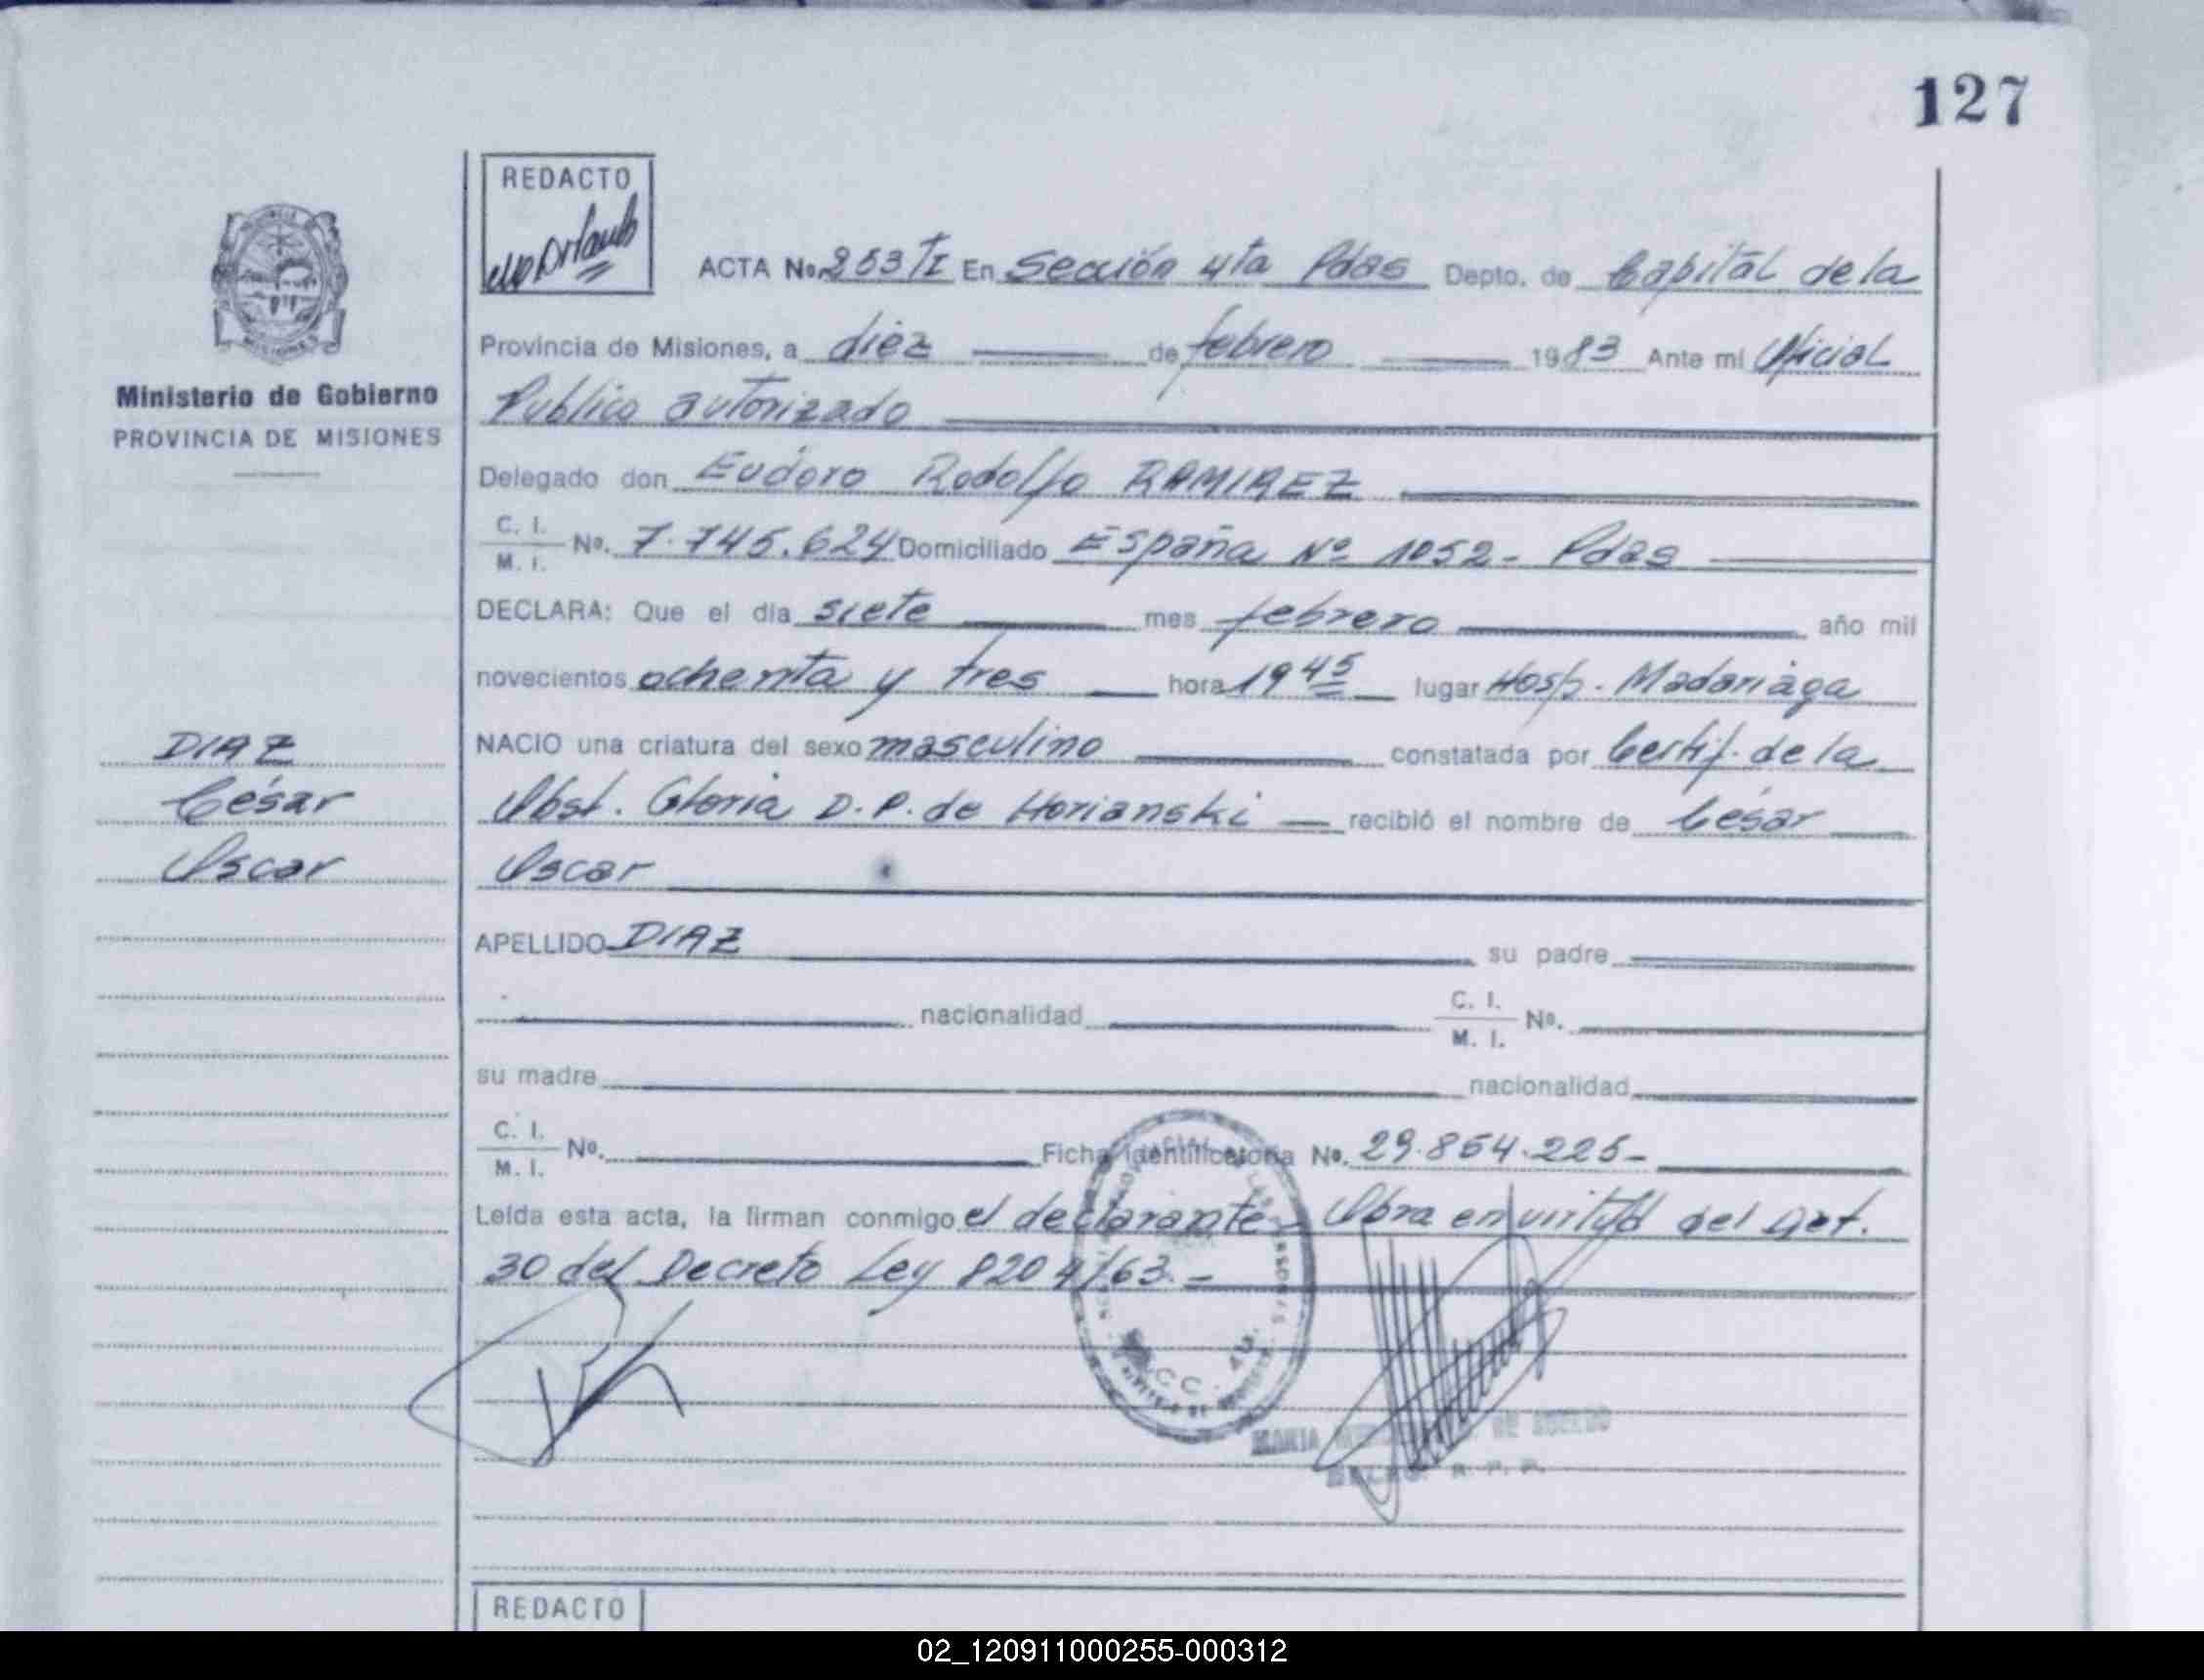 127
REDACTO
ACTA No. 253/I En Sección 4ta Pdas Depto. de Capital de la
Provincia de Misiones, a diez de febrero 1983 Ante mí Oficial
Publico autorizado
Ministerio de Gobierno
PROVINCIA DE MISIONES
Delegado don Eudoro Rodolfo RAMIREZ
C. I.
M. I. No. 7.745.624 Domiciliado España Nº 1052- Pdas
DECLARA: Que el día siete mes febrero año mil
novecientos ochenta y tres hora 19 45 lugar Hosp. Madariaga
NACIO una criatura del sexo masculino constatada por Certif. de la
Obst. Gloria D. P. de Horianski recibió el nombre de César
Oscar
DIAZ
César
Oscar
APELLIDO DIAZ su padre
nacionalidad C. I.
M. I. No.
su madre nacionalidad
C. I.
M. I. No. Ficha Identificatoria No. 29.854.225-
Leída esta acta, la firman conmigo el declarante - Obra en virtud del Art.
30 del Decreto Ley 8204/63.-
MARIA DE
R. P. P.
REDACTO
02_120911000255-000312